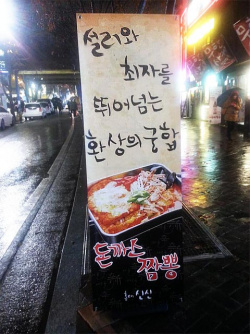 설리와
최자를
뛰어넘는
환상의 궁합
돈까스
짬뽕